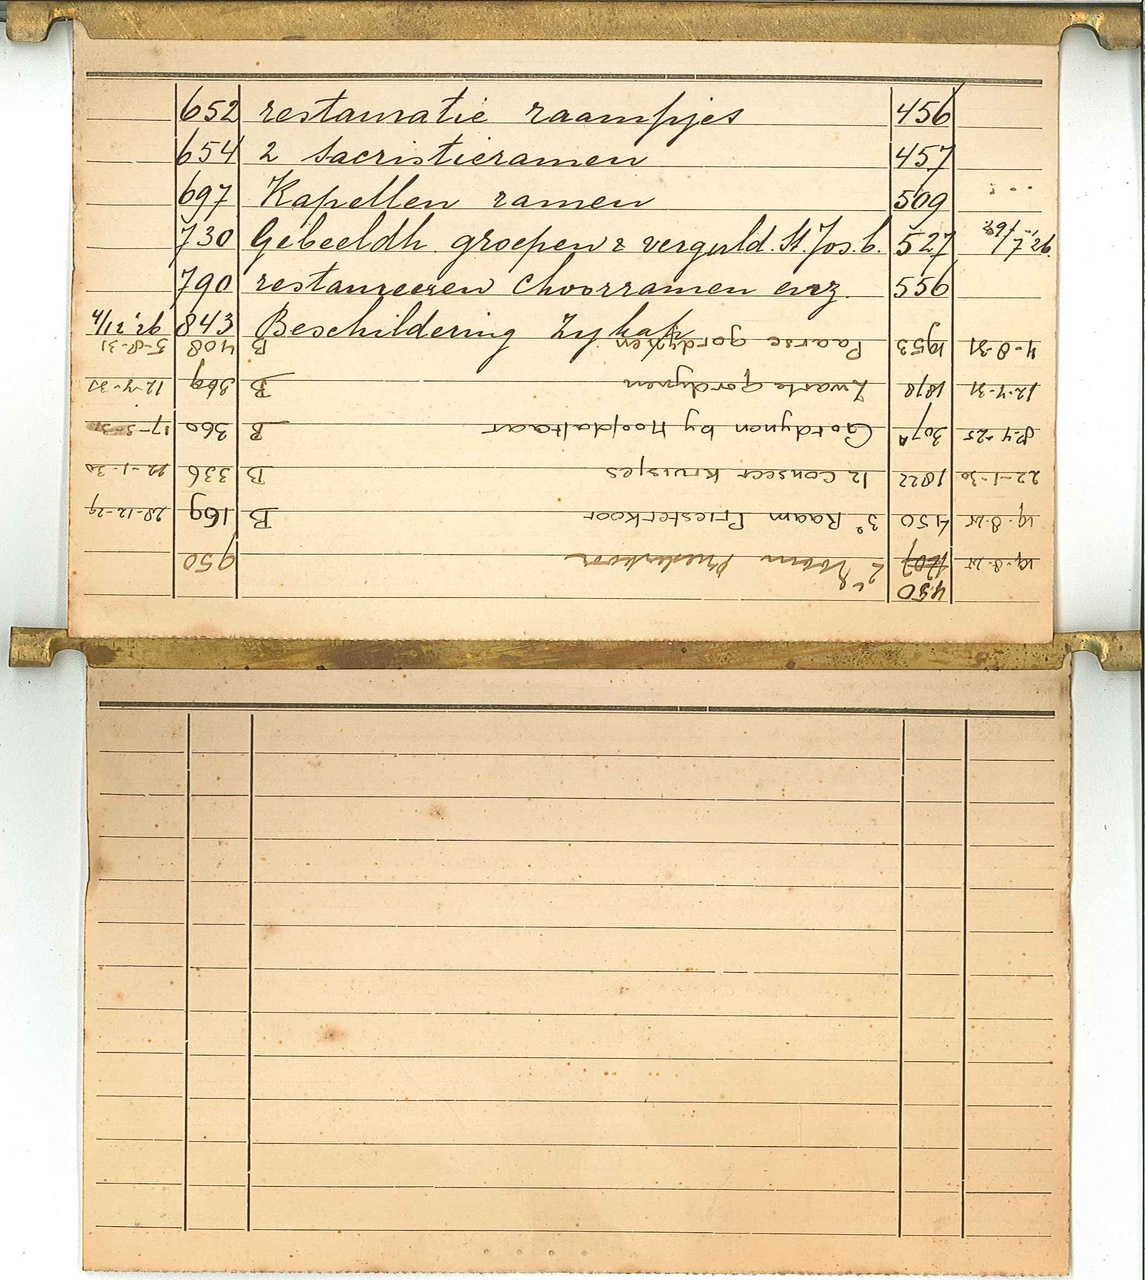 652 restauratie raampjes 456
654 2 Sacristieramen 457
697 Kapellen ramen 509
730 Gebeeldh. groepen & verguld. St. Jos. b. 527 29/7 '26
790 restaureeren Choorramen enz. 556
4/12 '26 843 Beschildering Zykap.
450
19-8-25 2e Raam Priesterkoor 950
19-8-25 450 3e Raam Priesterkoor B 169 28-12-29
22-1-30 1822 12 Conseer Kruisjes B 336 22-1-30
8-4-25 307A Gordynen by Hoofdaltaar B 360
12-7-31 1878 Zwarte gordynen B 369 12-7-31
4-8-31 1953 Paarse gordynen B 408 5-8-31